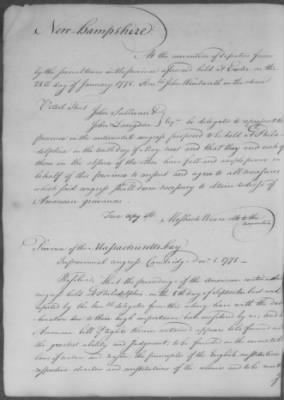 New Hampshire
At the convention of deputies from
by the several towns in the province aforesaid held at Exeter in the
25th day of January 1775. Honble John Wentworth in the chair
Voted That
John Sullivan &
John Langdon Esqrs be delegates to represent
province in the continental congress proposed to be held at Phila
delphia on the tenth day of May next and that they and each of
them in the absence of the other have full and ample power in
behalf of this province to consent and agree to all measures
which said congress shall deem necessary to obtain redress of
American grievances.
True copy attr Meshech Weare clk to the
convention
Province of the Massachusetts-bay
In provincial congress Cambridge Decr 5. 1774
Resolved That the proceedings of the American continental
congress held at Philadelphia on the 5th day of September last and
reported by the honble delegates from this colony have with the
due to their high importance been considered by us, and
American bill of rights therein contained appears to be formed with
the greatest ability and judgment; to be founded on the immutable
laws of nature and reason, the principles of the English constitution
respective charters and constitutions of the colonies and to be